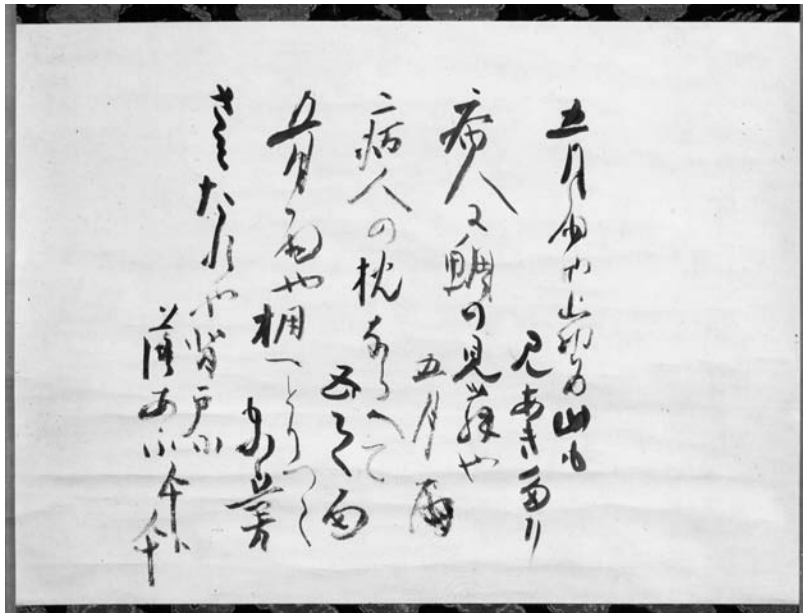 五月雨や上野の山も
見あきたり
病人に鯛の見舞や
五月雨
病人の枕ならべて
五月雨
五月雨や棚へとりつく
ものゝ蔓
さみだれや背戸に
落あふ傘と傘